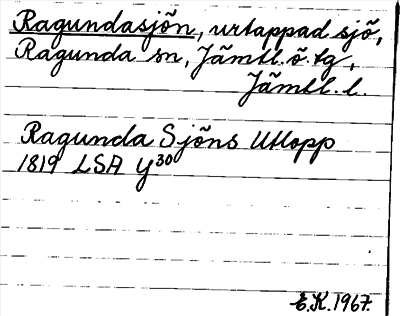 Ragundasjön, urtappad sjö,
Ragunda sn, Jämtl. ö. tg,
Jämtl. l.
Ragunda Sjöns Utlopp
1819 LSA Y30
E.K. 1967.